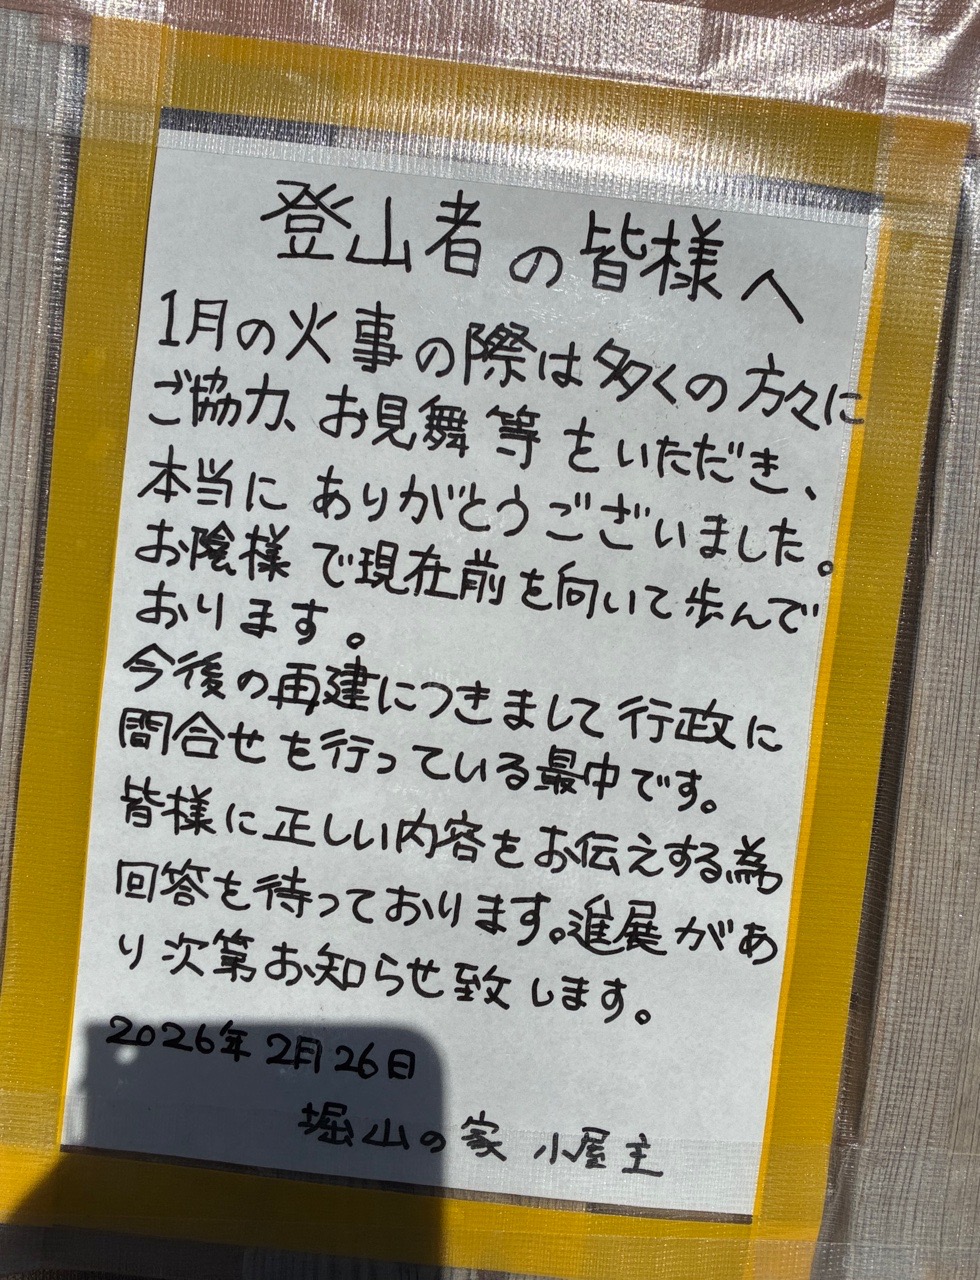 登山者の皆様へ
1月の火事の際は多くの方々に
ご協力、お見舞等をいただき、
本当にありがとうございました。
お陰様で現在前を向いて歩んで
おります。
今後の再建につきまして行政に
問合せを行っている最中です。
皆様に正しい内容をお伝えする為
回答を待っております。進展があ
り次第お知らせ致します。
2026年2月26日
堀山の家 小屋主